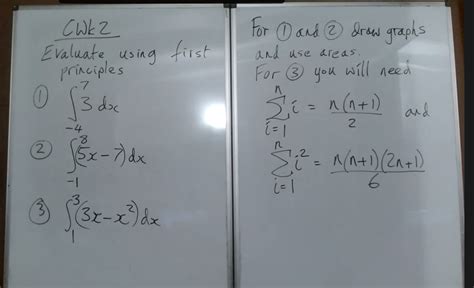 CWk2
Evaluate using first
principles
① ∫₋₄⁷ 3 dx
② ∫₋₁⁸ (5x-7) dx
③ ∫₁³ (3x-x²) dx
For ① and ② draw graphs
and use areas.
For ③ you will need
∑ᵢ₌₁ⁿ i = n(n+1)/2 and
∑ᵢ₌₁ⁿ i² = n(n+1)(2n+1)/6